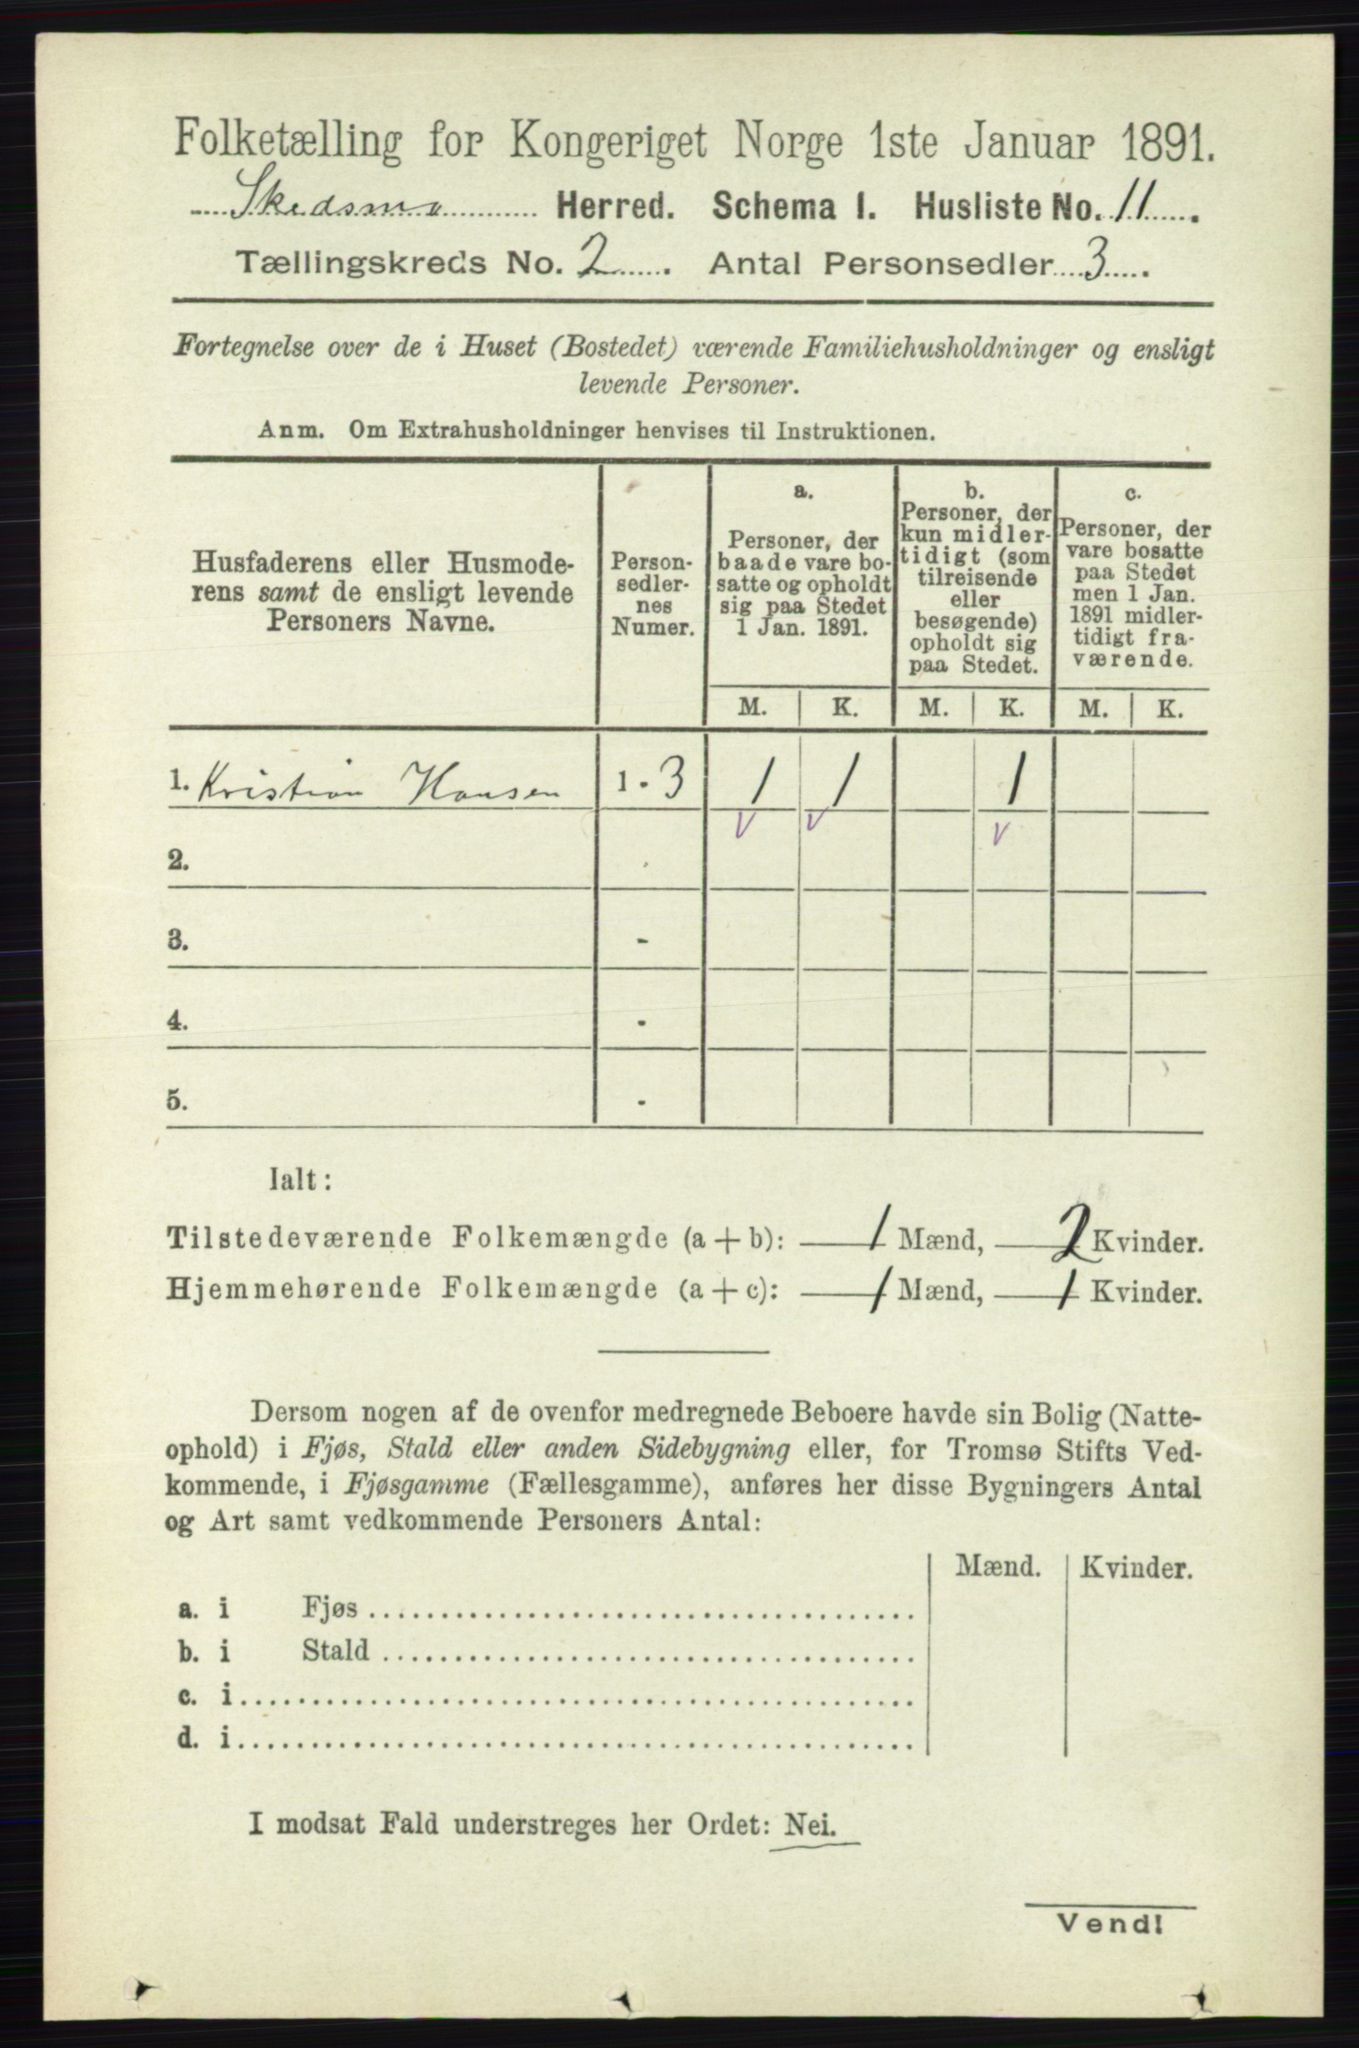 Folketælling for Kongeriget Norge 1ste Januar 1891.
Skedsmo Herred. Schema I. Husliste No. 11.
Tællingskreds No. 2. Antal Personsedler 3.
Fortegnelse over de i Huset (Bostedet) værende Familiehusholdninger og ensligt
levende Personer.
Anm. Om Extrahusholdninger henvises til Instruktionen.
Husfaderens eller Husmode-
rens samt de ensligt levende
Personers Navne.
Person-
sedler-
nes
Numer.
a.
Personer, der
baade vare bo-
satte og opholdt
sig paa Stedet
1 Jan. 1891.
b.
Personer, der
kun midler-
tidigt (som
tilreisende
eller
besøgende)
opholdt sig
paa Stedet.
c.
Personer, der
vare bosatte
paa Stedet
men 1 Jan.
1891 midler-
tidigt fra-
værende.
M. K. M. K. M. K.
1. Kristian Hansen 1 - 3 1 1 1
2.
3. -
4. -
5. -
Ialt:
Tilstedeværende Folkemængde (a + b): 1 Mænd, 2 Kvinder.
Hjemmehørende Folkemængde (a + c): 1 Mænd, 1 Kvinder.
Dersom nogen af de ovenfor medregnede Beboere havde sin Bolig (Natte-
ophold) i Fjøs, Stald eller anden Sidebygning eller, for Tromsø Stifts Ved-
kommende, i Fjøsgamme (Fællesgamme), anføres her disse Bygningers Antal
og Art samt vedkommende Personers Antal:
Mænd. Kvinder.
a. i Fjøs
b. i Stald
c. i
d. i
I modsat Fald understreges her Ordet: Nei.
Vend!